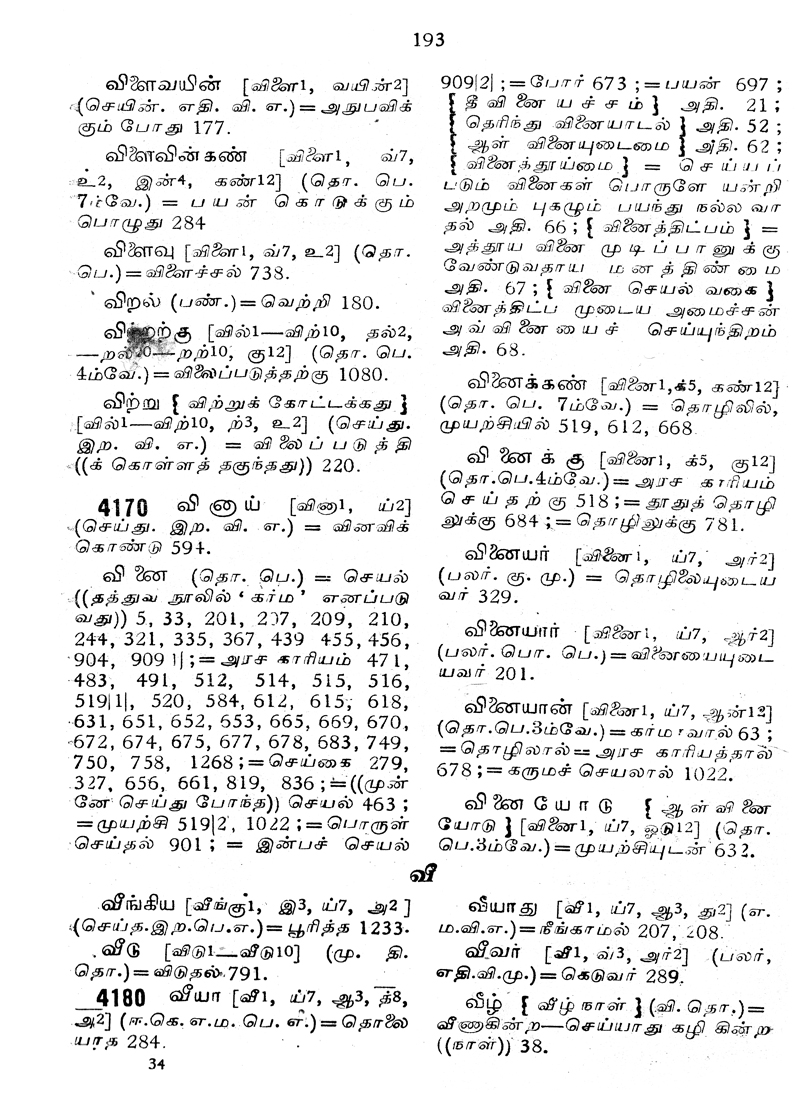 193
விளைவயின் [விளை1, வயின்2]
(செயின். எதி. வி. எ.)=அநுபவிக்
கும் போது 177.
விளைவின்கண் [விளை1, வ்7,
உ2, இன்4, கண்12] (தொ. பெ.
7ம்வே.) = பயன் கொடுக்கும்
பொழுது 284
விளைவு [விளை1, வ்7, உ2] (தொ.
பெ.)=விளைச்சல் 738.
விறல் (பண்.)=வெற்றி 180.
விற்றற்கு [வில்1—விற்10, தல்2,
—றல்10—றற்10, கு12] (தொ. பெ.
4ம்வே.)=விலைப்படுத்தற்கு 1080.
விற்று { விற்றுக் கோட்டக்கது }
[வில்1—விற்10, ற்3, உ2] (செய்து.
இற. வி. எ.) = விலைப் படுத்தி
((க் கொள்ளத் தகுந்தது)) 220.
4170 வினாய் [வினா1, ய்2]
(செய்து. இற. வி. எ.) = வினவிக்
கொண்டு 594.
வினை (தொ. பெ.) = செயல்
((தத்துவ நூலில் ‘கர்ம’ எனப்படு
வது)) 5, 33, 201, 207, 209, 210,
244, 321, 335, 367, 439 455, 456,
904, 909|1|;=அரச காரியம் 471,
483, 491, 512, 514, 515, 516,
519|1|, 520, 584, 612, 615, 618,
631, 651, 652, 653, 665, 669, 670,
672, 674, 675, 677, 678, 683, 749,
750, 758, 1268;=செய்கை 279,
327, 656, 661, 819, 836;=((முன்
னே செய்து போந்த)) செயல் 463;
=முயற்சி 519|2|, 1022;=பொருள்
செய்தல் 901; = இன்பச் செயல்
909|2|;=போர் 673;=பயன் 697;
{ தீவினையச்சம் } அதி. 21;
{ தெரிந்து வினையாடல் } அதி. 52;
{ ஆள் வினையுடைமை } அதி. 62;
{ வினைத்தூய்மை } = செய்யப்
படும் வினைகள் பொருளே யன்றி
அறமும் புகழும் பயந்து நல்ல வா
தல் அதி. 66; { வினைத்திட்பம் } =
அத்தூய வினை முடிப்பானுக்கு
வேண்டுவதாய மனத்திண்மை
அதி. 67; { வினை செயல் வகை }
வினைத்திட்ப முடைய அமைச்சன்
அவ்வினையைச் செய்யுந்திறம்
அதி. 68.
வினைக்கண் [வினை1,க்5, கண்12]
(தொ. பெ. 7ம்வே.) = தொழிலில்,
முயற்சியில் 519, 612, 668
வினைக்கு [வினை1, க்5, கு12]
(தொ.பெ.4ம்வே.)=அரச காரியம்
செய்தற்கு 518;=தூதுத் தொழி
லுக்கு 684;=தொழிலுக்கு 781.
வினையர் [வினை1, ய்7, அர்2]
(பலர். கு. மு.) = தொழிலையுடைய
வர் 329.
வினையார் [வினை1, ய்7, ஆர்2]
(பலர். பொ. பெ.)=வினையையுடை
யவர் 201.
வினையான் [வினை1, ய்7, ஆன்12]
(தொ.பெ.3ம்வே.)=கர்மாவால் 63;
=தொழிலால்=அரச காரியத்தால்
678;=கருமச் செயலால் 1022.
வினையோடு { ஆள்வினை
யோடு } [வினை1, ய்7, ஒடு12] (தொ.
பெ.3ம்வே.)=முயற்சியுடன் 632.
வீ
வீங்கிய [வீங்கு1, இ3, ய்7, அ2]
(செய்த.இற.பெ.எ.)=பூரித்த 1233.
வீடு [விடு1—வீடு10] (மு. தி.
தொ.)=விடுதல் 791.
4180 வீயா [வீ1, ய்7, ஆ3, த்8,
அ2] (ஈ.கெ.எ.ம. பெ. எ.)=தொலை
யாத 284.
வீயாது [வீ1, ய்7, ஆ3, து2] (எ.
ம.வி.எ.)=நீங்காமல் 207, 208.
வீவர் [வீ1, வ்3, அர்2] (பலர்,
எதி.வி.மு.)=கெடுவர் 289.
வீழ் { வீழ் நாள் } (வி. தொ.)=
வீணாகின்ற—செய்யாது கழி கின்ற
((நாள்)) 38.
34